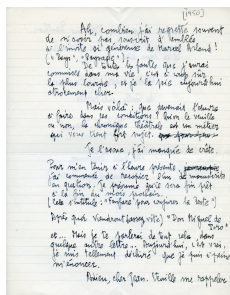 [1950]
Ah, combien j'ai regretté souvent
de n'avoir pas souscrit d'emblée
à l'invite si généreuse de Marcel Arland !
De toutes les fautes que j'aurai
commises dans ma vie, c'est
la plus lourde, et je la paie aujourd'hui
Mais voilà : que devenait l'œuvre
à faire dans ces conditions ? Qu'on le veuille
ou non, la chronique théâtrale est un métier
qui vous tient fort sujet.
Je l'avoue, j'ai manqué de
Pour m'en tenir à l'heure présente,
j'ai commencé de recopier l'un de manuscrits
en question. Je présume qu'il sera fin prêt
à la fin du mois
(cela s'intitule : "
Après quoi viendront (assez vite) "Don Miguel de
et... Mais je te parlerai de tout cela dans
quelque autre lettre... Aujourd'hui, c'est vrai,
je suis tellement que je puis à peine
m'énoncer.
Amen, cher Jean. Veuille me rappeler